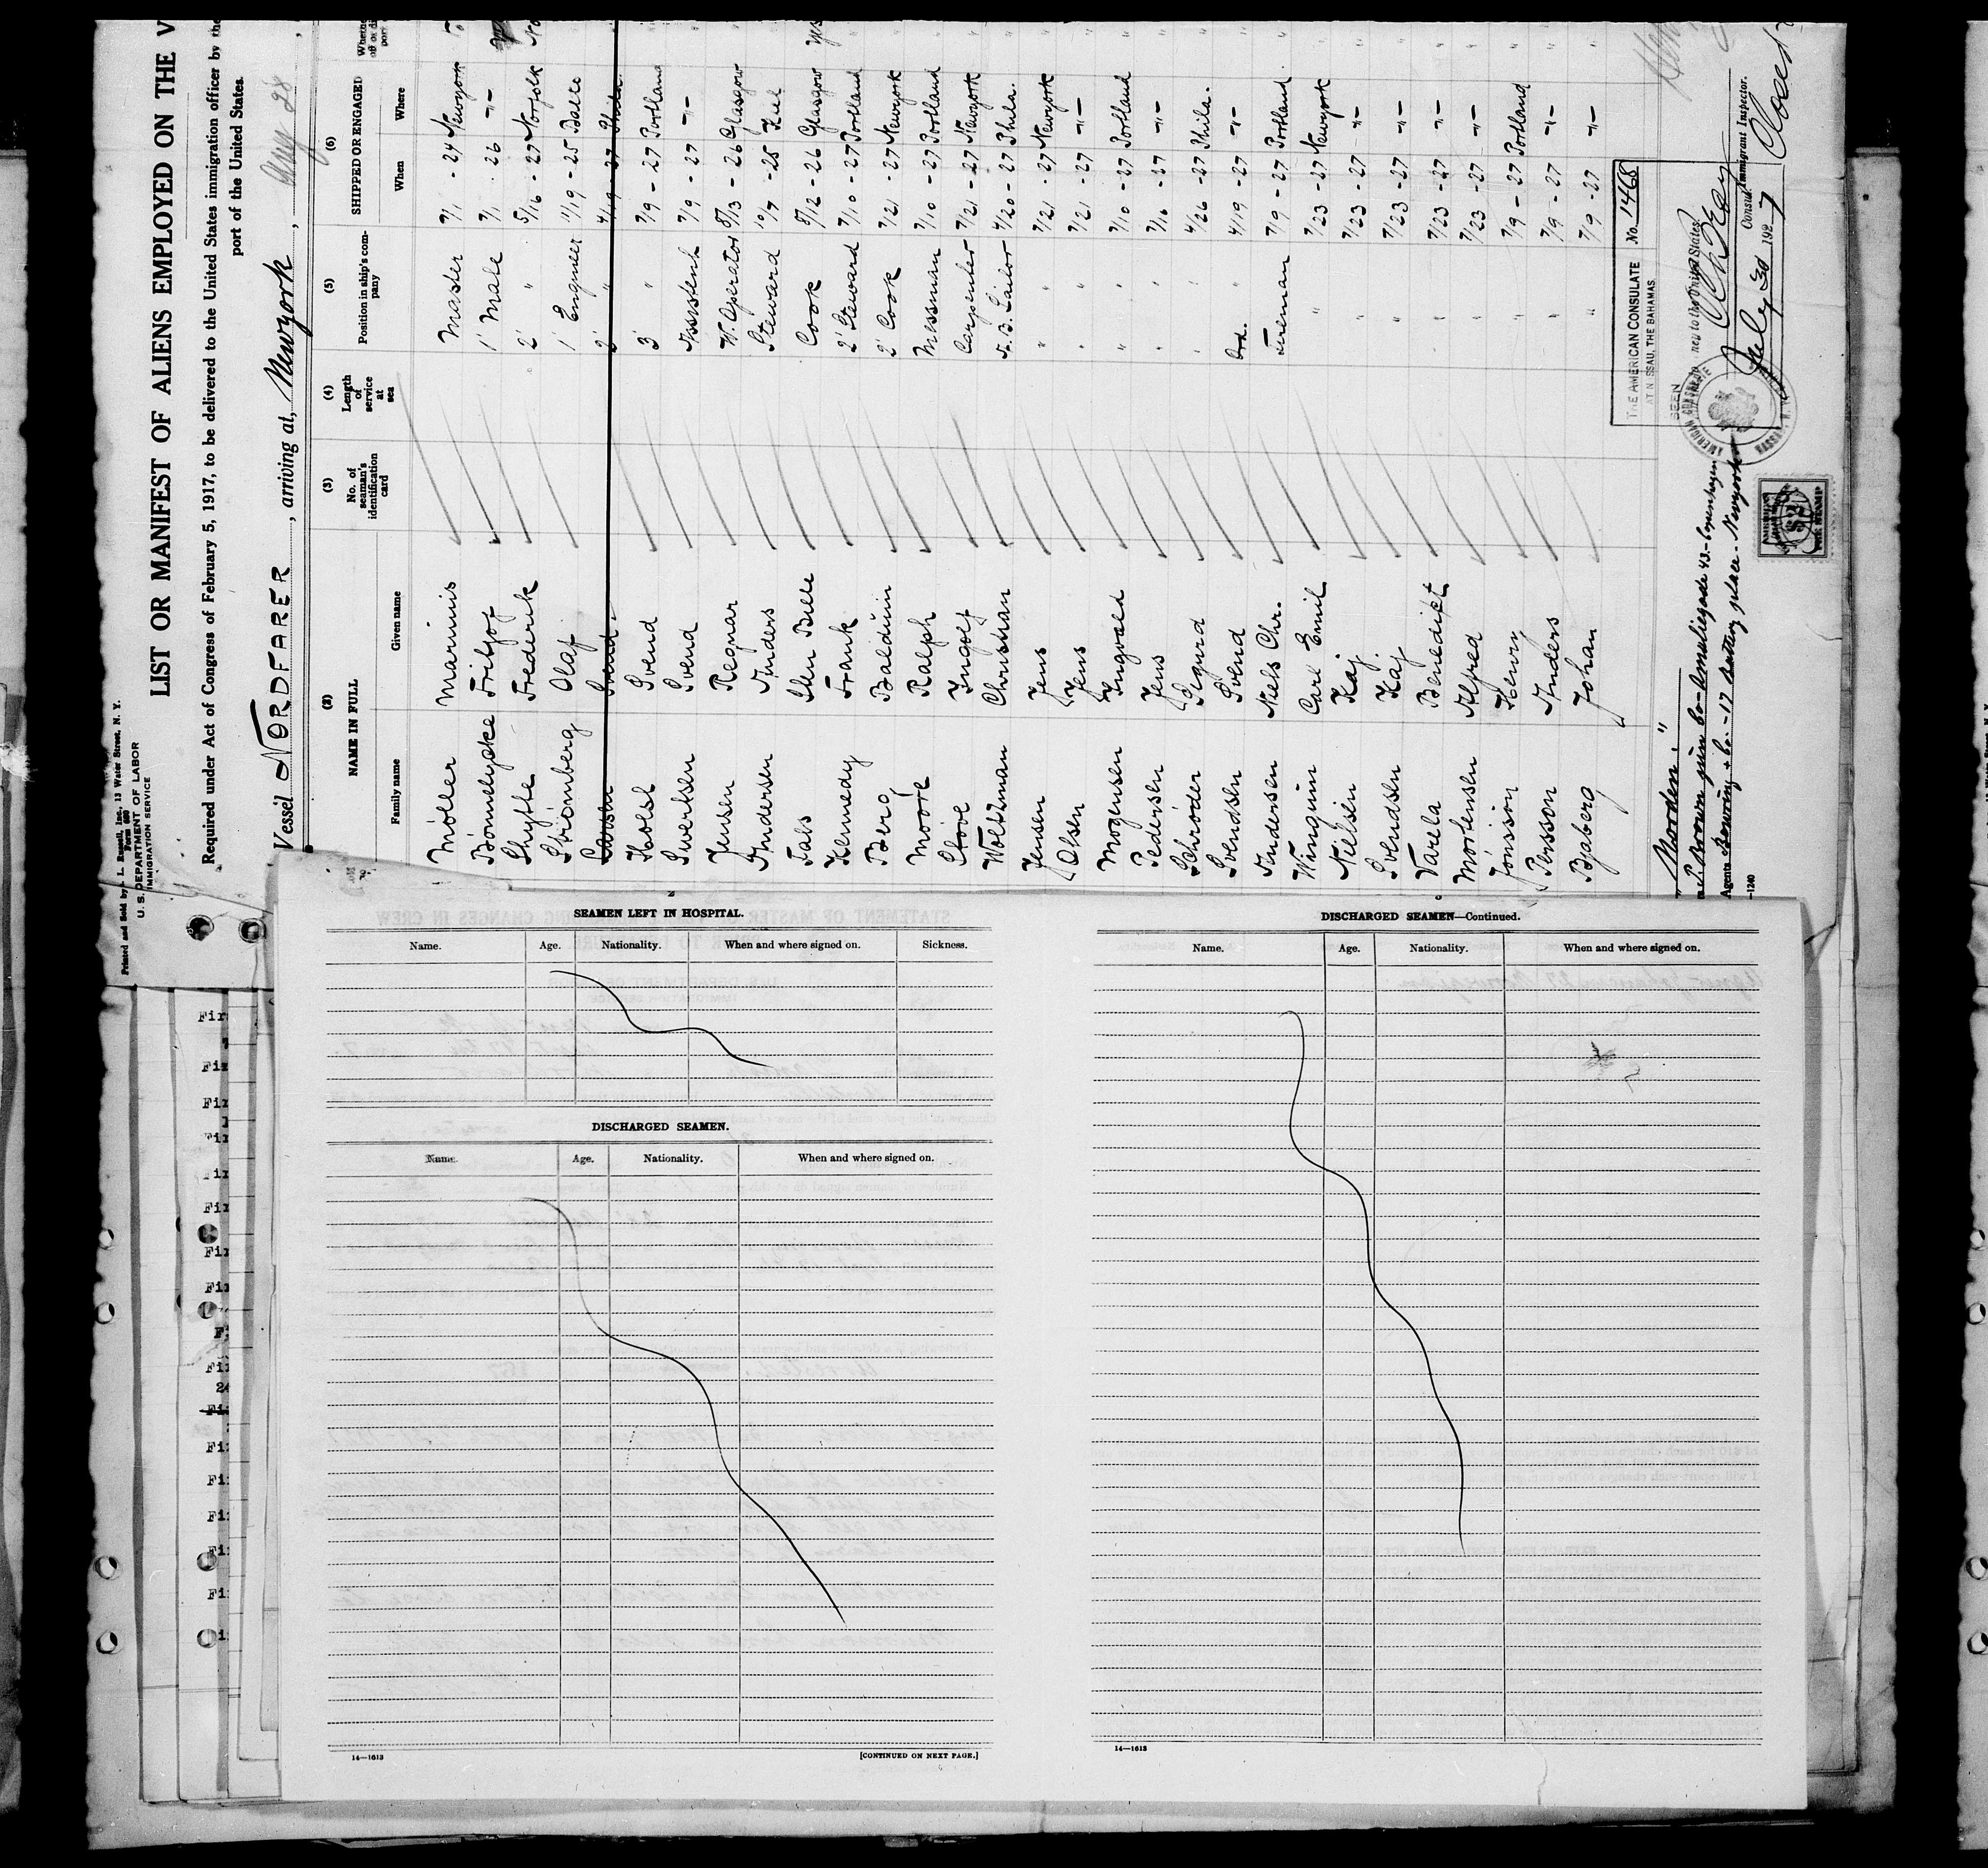 Printed and Sold by I. L. Russell, Inc., 13 Water Street, N. Y.
Form 680
U. S. DEPARTMENT OF LABOR
IMMIGRATION SERVICE
LIST OR MANIFEST OF ALIENS EMPLOYED ON THE V
Required under Act of Congress of February 5, 1917, to be delivered to the United States immigration officer by the
port of the United States.
Vessel NORDFARER, arriving at, Newyork,
(2) NAME IN FULL (3) (4) (5) (6) SHIPPED OR ENGAGED
Family name Given name No. of seaman's identification card Length of service at sea Position in ship's company When Where
Møller Marinus Master 7/1 - 24 Newyork
Bønnelycke Fritjof 1' Mate 7/1 - 26 -"-
Thythe Frederik 2' " 5/16 - 27 Norfolk
Strömberg Olaf 1' Engineer 11/19 - 25
Larsen Svend 2' " 4/19 - 27 Phila.
Holst Svend 3' " 7/9 - 27 Portland
Sivertsen Svend Assistent 7/9 - 27 -"-
Jensen Regnar W. Operator 8/13 - 26 Glasgow
Andersen Anders Steward 10/7 - 25 Kiel
Sten Bille Cook 8/12 - 26 Glasgow
Kennedy Frank 2' Steward 7/10 - 27 Portland
Berg Balduin 2' Cook 7/21 - 27 Newyork
Moore Ralph Messman 7/10 - 27 Portland
Ingolf Carpenter 7/21 - 27 Newyork
Wolthman Christian A. B. Sailor 4/20 - 27 Phila.
Jensen Jens " 7/21 - 27 Newyork
Olsen Jens " 7/21 - 27 -"-
Mogensen Ingvald " 7/10 - 27 Portland
Pedersen Jens " 7/10 - 27 -"-
Schrøder Sigurd " 4/26 - 27 Phila.
Svendsen Svend Ord. " 4/19 - 27 -"-
Andersen Niels Chr. Fireman 7/9 - 27 Portland
Wingum Carl Emil " 7/23 - 27 Newyork
Nielsen Kaj " 7/23 - 27 -"-
Svendsen Kaj " 7/23 - 27 -"-
Varela Benedikt " 7/23 - 27 -"-
Mortensen Alfred " 7/23 - 27 -"-
Jönsson Henry " 7/9 - 27 Portland
Persson Anders " 7/9 - 27 -"-
Bjaberg Johan " 7/9 - 27 -"-
THE AMERICAN CONSULATE
AT NASSAU, THE BAHAMAS
No. 1468
SEEN
July 30 1927
Consul
Immigrant Inspector.
"Norden."
Agents Bowring & Co. - 17 Battery place - Newyork
—1240
AMERICAN
$2
FEE STAMP
SEAMEN LEFT IN HOSPITAL.
Name. Age. Nationality. When and where signed on. Sickness.
DISCHARGED SEAMEN.
Name. Age. Nationality. When and where signed on.
14—1613 [CONTINUED ON NEXT PAGE.]
DISCHARGED SEAMEN—Continued.
Name. Age. Nationality. When and where signed on.
14—1613